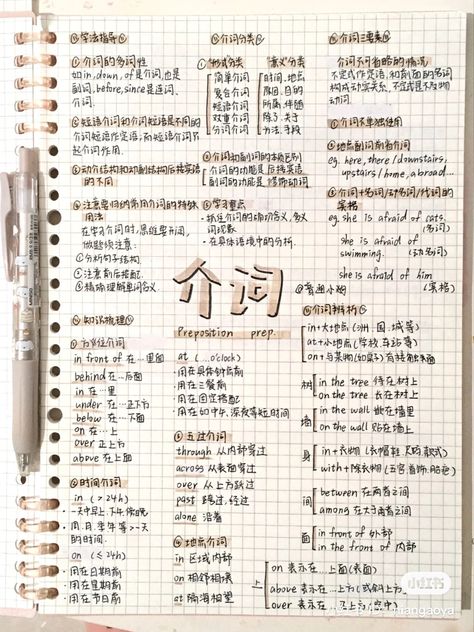 学法指导
①介词的多词性
如in, down, of是介词, 也是
副词, before, since是连词、
介词.
②短语介词和介词短语是不同的
介词短语作定语; 而短语介词只
起介词作用.
③动介结构和动副结构后接宾语
的不同
④注意要归纳常用介词的特殊
用法
在学习介词时, 思维要开阔,
做题须注意:
①分析句子结构.
②注意前后搭配.
③精确理解单词含义.
介词分类
形式分类
简单介词
复合介词
短语介词
双重介词
分词介词
意义分类
时间、地点
原因、目的
所属、伴随
除了、关于
方法、手段
介词和副词的本质区别
介词的功能是后接宾语
副词的功能是修饰动词
学习重点
·抓住介词的主动介含义, 多义
词现象
·在具体语境中的分析.
介词三要素
介词不可省略的情况
不定式作定语, 和前面的名词
构成动宾关系, 不定式是不及物
动词.
介词不单独使用
地点副词前省介词
eg. here, there / downstairs,
upstairs / home, abroad...
介词+名词/动名词/代词的
宾格
eg. she is afraid of cats.
(名词)
she is afraid of
swimming. (动名词)
she is afraid of him
(宾格)
介词
Preposition prep.
知识梳理
①方位介词
in front of 在…里面
behind 在…后面
in 在…里
under 在…正下方
below 在…下面
on 在…上
over 正上方
above 在…上面
②时间介词
in (>24h)
·一天中早上, 下午, 傍晚
·周、月、学年等>一天
的时间.
on (≤24h)
·用在日期前
·用在星期前
·用在节日前
at (…o'clock)
·用在具体钟点前
·用在三餐前
·用在固定搭配
·用在如中午, 深夜等短时间
③五过介词
through 从内部穿过
across 从表面穿过
over 从上方跃过
past 路过, 经过
along 沿着
④地点介词
in 区域内部
on 相邻相接
at 隔海相望
介词辨析
in+大地点(洲、国、城等)
at+小地点(学校、车站等)
on+与某物(如桌子)有接触表面
树
in the tree 待在树上
on the tree 长在树上
墙
in the wall 嵌在墙里
on the wall 贴在墙上
身
in+衣物(衣帽鞋, 尺码款式)
with+除衣物(五官首饰, 胎记)
间
between 在两者之间
among 在大于两者之间
面
in front of 外部
in the front of 内部
上
on 表示在…上面(表面)
above 表示在…上方(或斜上方)
over 表示在…正上方(空中)
小红书